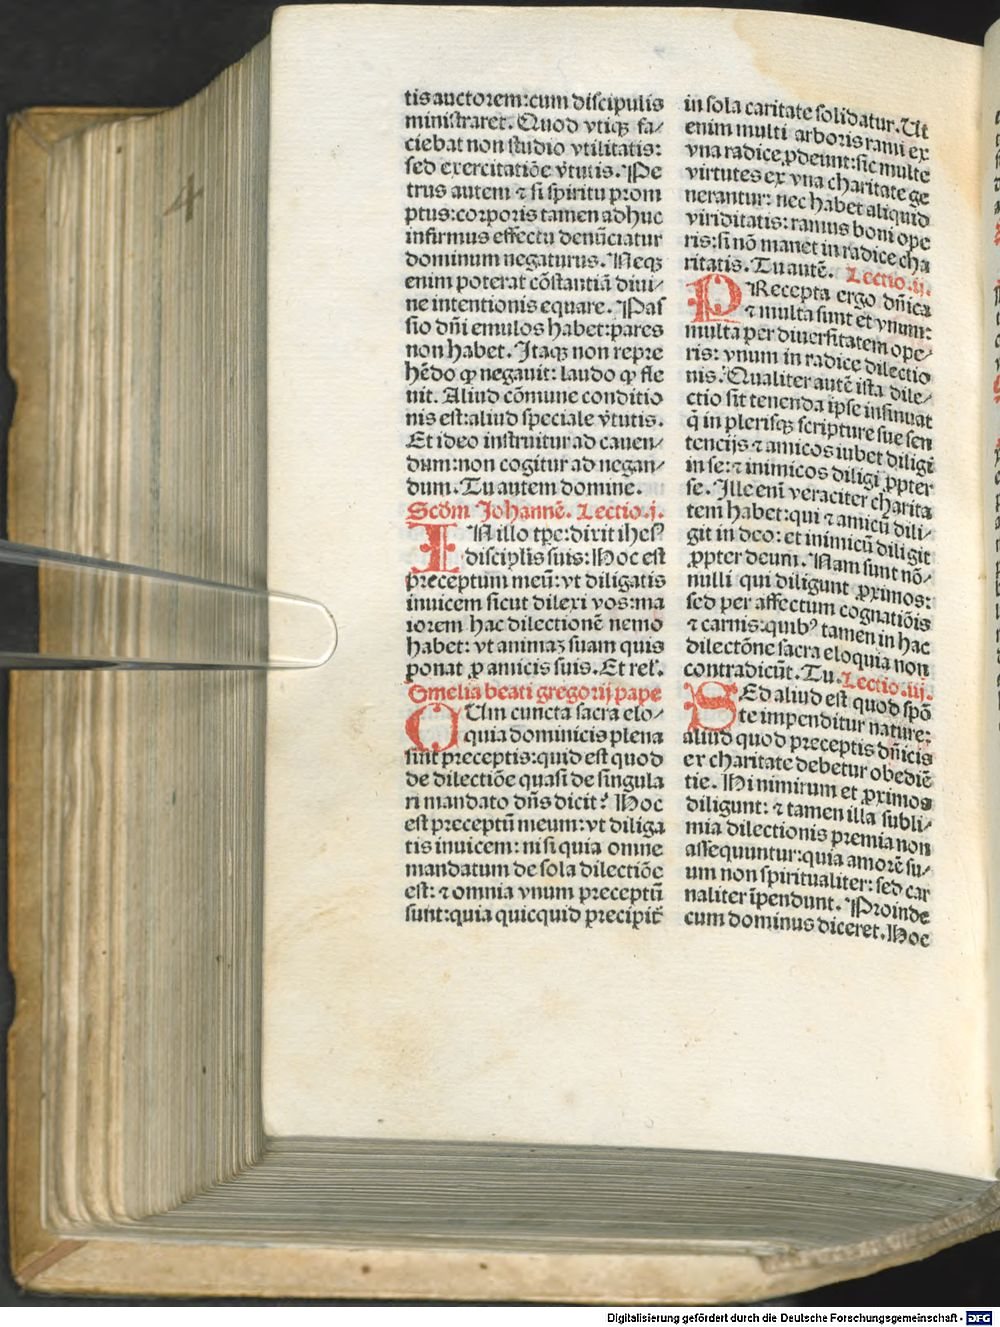 4
tis auctorem:cum discipulis
ministraret. Quod vtiqꝫ fa⸗
ciebat non studio vtilitatis:
sed exercitatiōe v̄tutis. Pe
trus autem ⁊ si spiritu prom
ptus:corporis tamen adhuc
infirmus effectu denūciatur
dominum negaturus. Neqꝫ
enim poterat cōstantiā diui⸗
ne intentionis equare. Pas
sio dn̄i emulos habet:pares
non habet. Itaqꝫ non repre
hēdo ꝙ negauit: laudo ꝙ fle
uit. Aliud cōmune conditio
nis est:aliud speciale v̄tutis.
Et ideo instruitur ad cauen⸗
dum:non cogitur ad negan⸗
dum. Tu autem domine.
Scd̄m Johannē. Lectio.j.
IN illo tp̄e:dixit ihesꝰ
discip̄lis suis: Hoc est
preceptum meū: vt diligatis
inuicem sicut dilexi vos:ma
iorem hac dilectionē nemo
habet: vt animaꝫ suam quis
ponat ꝓ amicis suis. Et rel'.
Omelia beati gregorij pape
CUm cuncta sacra elo⸗
quia dominicis plena
sint preceptis:quid est quod
de dilectiōe quasi de singula
ri mandato dn̄s dicit? Hoc
est preceptū meum: vt diliga
tis inuicem: nisi quia omne
mandatum de sola dilectiōe
est: ⁊ omnia vnum preceptū
sunt:quia quicquid precipit̄
in sola caritate solidatur. Ut
enim multi arboris rami ex
vna radice ꝓdeunt:sic multe
virtutes ex vna charitate ge
nerantur: nec habet aliquid
viriditatis: ramus boni ope
ris: si nō manet in radice cha
ritatis. Tu autē. Lectio.ij.
PRecepta ergo dn̄ica
⁊ multa sunt et vnum:
multa per diuersitatem ope⸗
ris: vnum in radice dilectio
nis. Qualiter autē ista dile⸗
ctio sit tenenda ipse insinuat
q̄ in plerisqꝫ scripture sue sen
tencijs ⁊ amicos iubet diligi
in se: ⁊ inimicos diligi ꝓpter
se. Ille eni veraciter charita
tem habet:qui ⁊ amicū dili⸗
git in deo: et inimicū diligit
ꝓpter deum. Nam sunt nō⸗
nulli qui diligunt ꝓximos:
sed per affectum cognatiōis
⁊ carnis:quibꝰ tamen in hac
dilectōne sacra eloquia non
contradicūt. Tu. Lectio.iij.
SEd aliud est quod spō
te impenditur nature:
aliud quod preceptis dn̄icis
ex charitate debetur obediē
tie. Hi nimirum et ꝓximos
diligunt: ⁊ tamen illa subli⸗
mia dilectionis premia non
assequuntur:quia amorē su⸗
um non spiritualiter: sed car
naliter īpendunt. Proinde
cum dominus diceret. Hoc
Digitalisierung gefördert durch die Deutsche Forschungsgemeinschaft - DFG